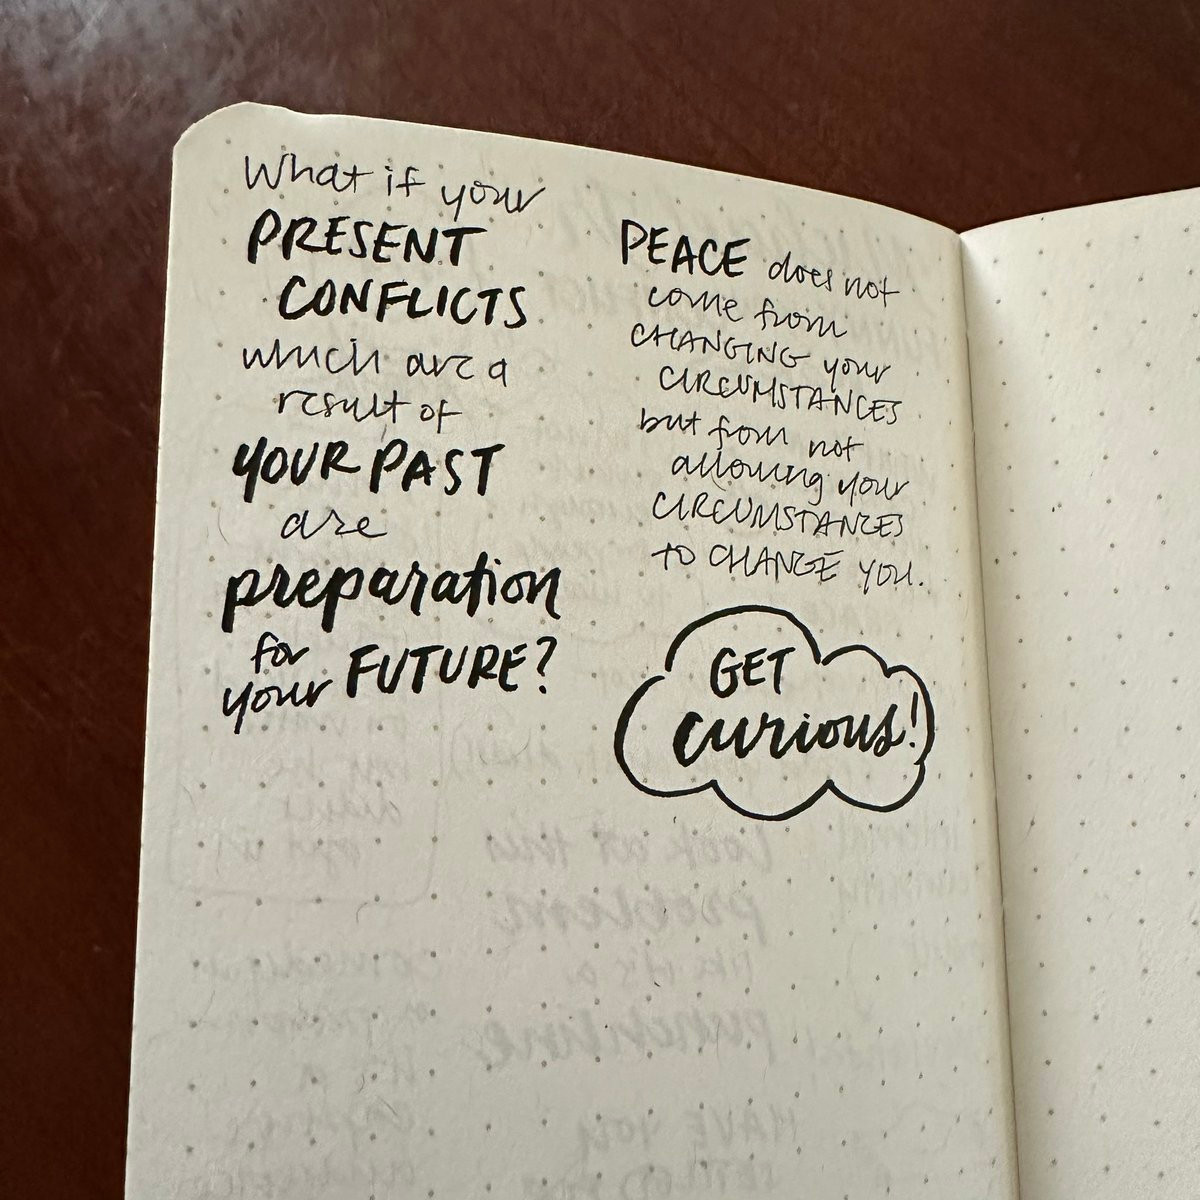 What if your
PRESENT
CONFLICTS
which are a
result of
YOUR PAST
are
preparation
for
your FUTURE?
PEACE does not
come from
CHANGING your
CIRCUMSTANCES
but from not
allowing your
CIRCUMSTANCES
TO CHANGE YOU.
GET
curious!